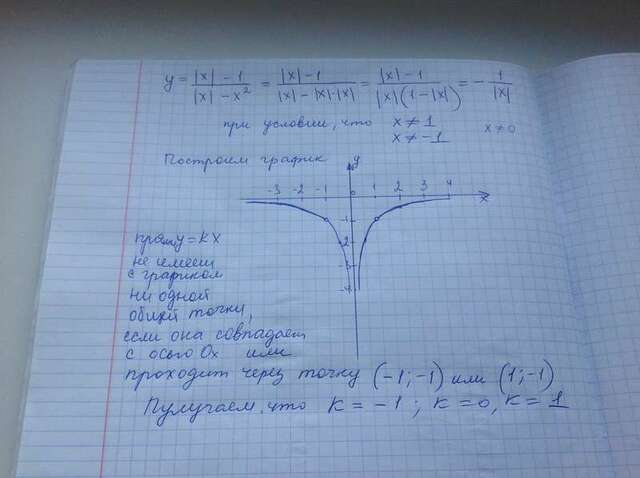 y = |x| - 1 / |x| - x² = |x| - 1 / |x| - |x|·|x| = |x| - 1 / |x|(1 - |x|) = - 1 / |x|
при условии, что x ≠ 1 x ≠ 0
x ≠ -1
Построим график
y
-3 -2 -1 0 1 2 3 4 x
-1
-2
-3
-4
y = kx
не имеет
с графиком
ни одной
общей точки,
если она совпадает
с осью Ox или
проходит через точку (-1; -1) или (1; -1)
Пулучаем, что k = -1 ; k = 0, k = 1